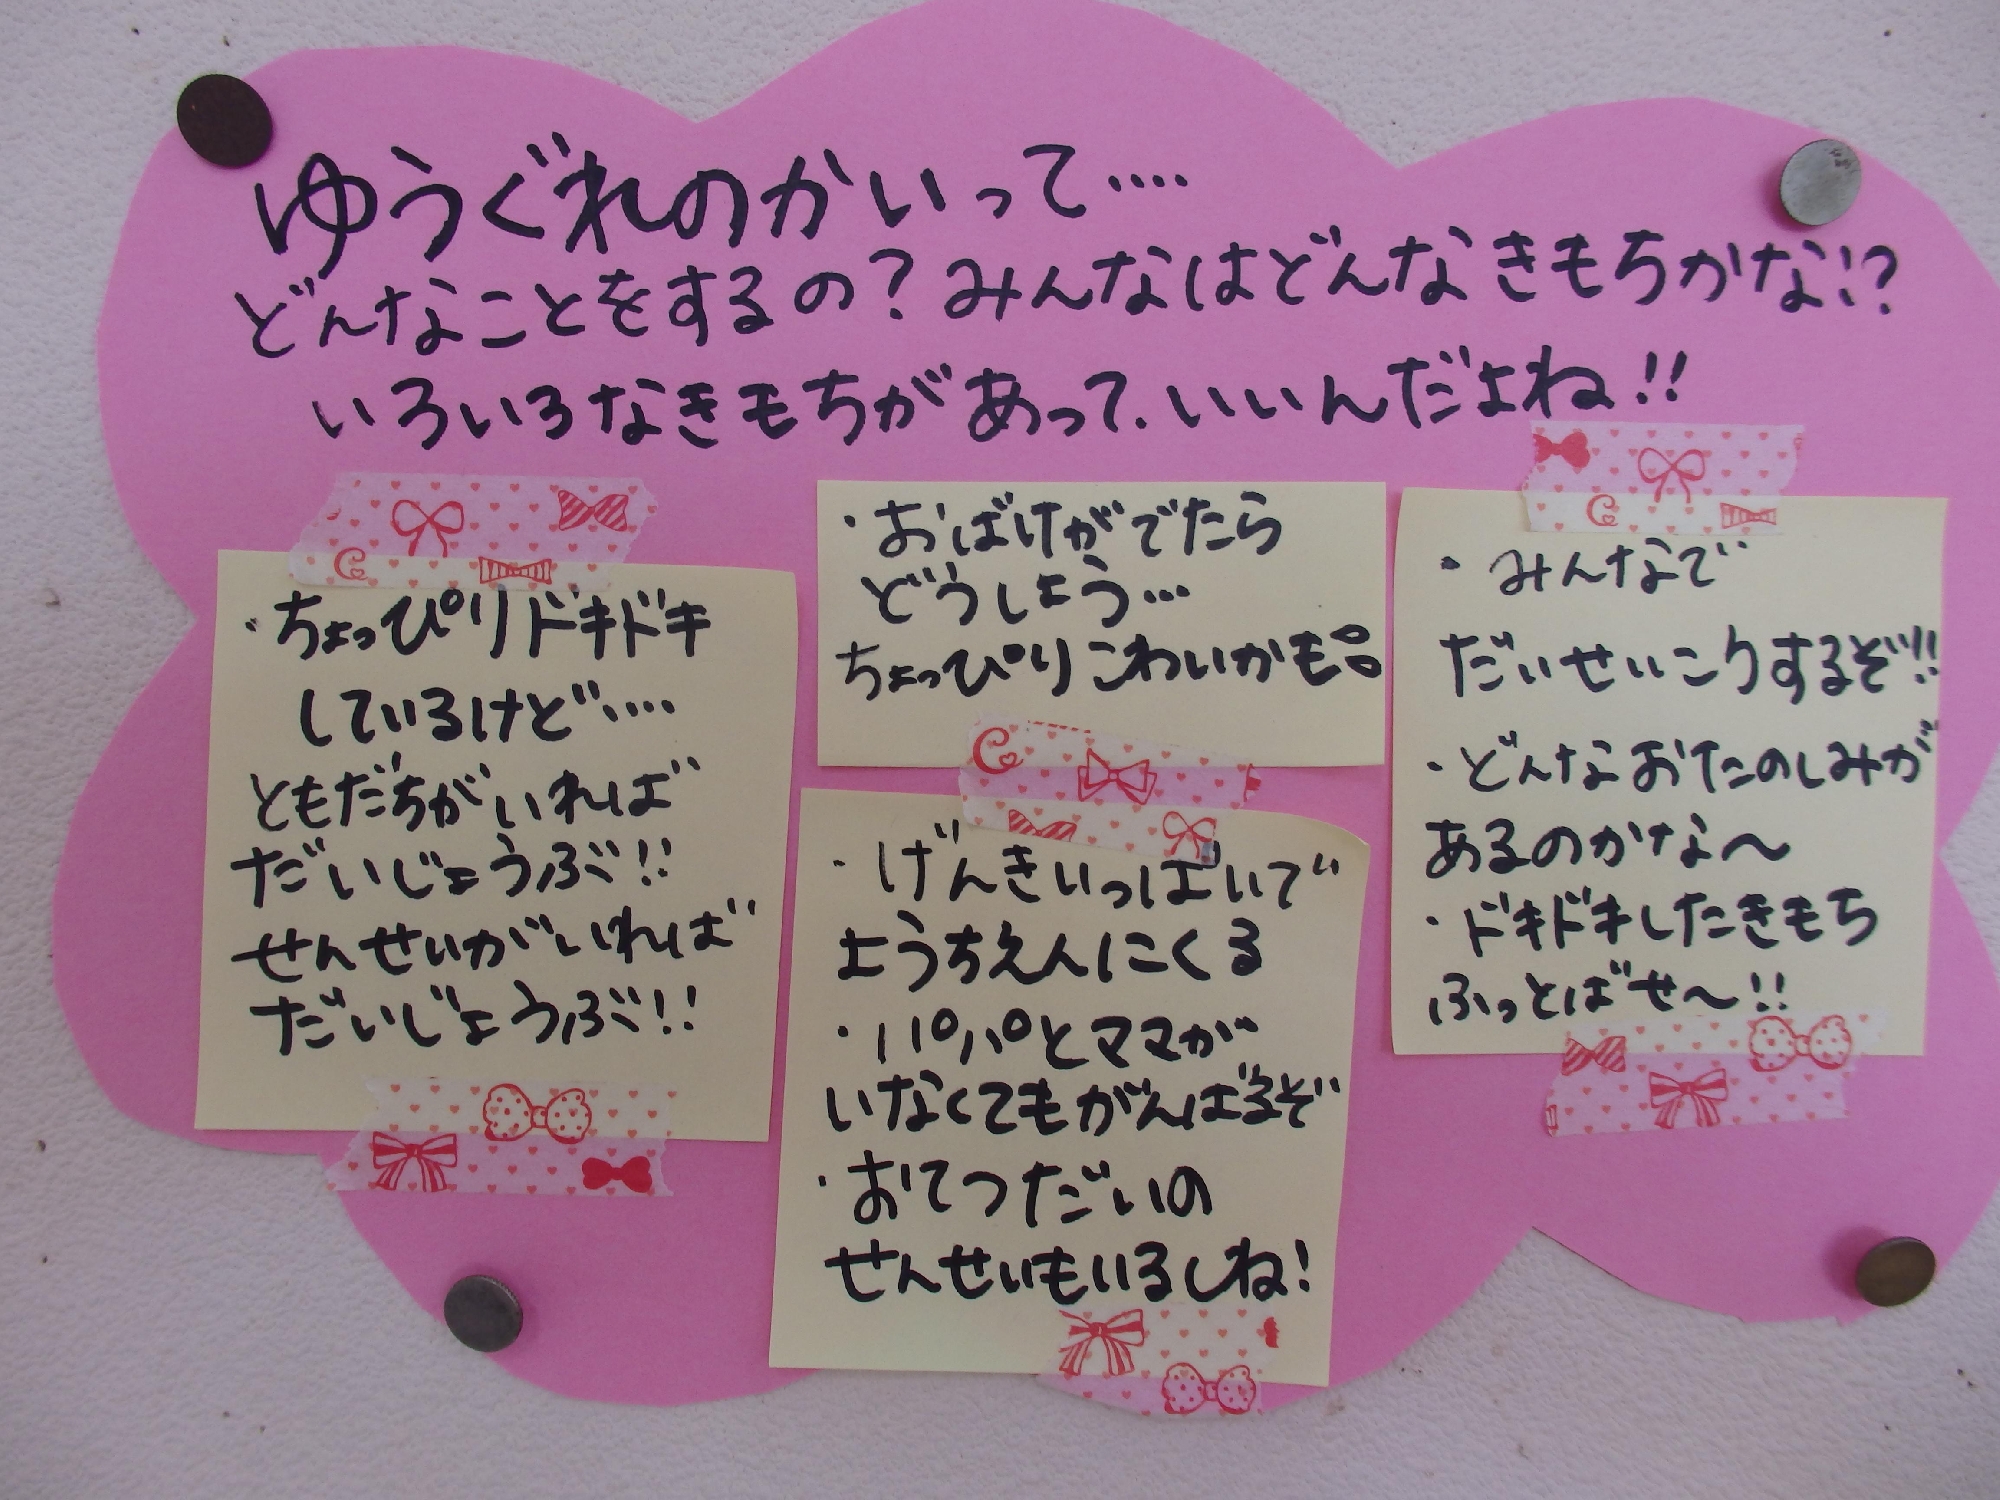 ゆうぐれのかいって‥‥
どんなことをするの？みんなはどんなきもちかな!?
いろいろなきもちがあって、いいんだよね!!
・ちょっぴりドキドキ
しているけど‥‥
ともだちがいれば
だいじょうぶ!!
せんせいがいれば
だいじょうぶ!!
・おばけがでたら
どうしよう…
ちょっぴりこわいかも
・げんきいっぱいで
ようちえんにくる
・パパとママが
いなくてもがんばるぞ
・おてつだいの
せんせいもいるしね!
・みんなで
だいせいこうするぞ!!
・どんなおたのしみが
あるのかな〜
・ドキドキしたきもち
ふっとばせ〜!!